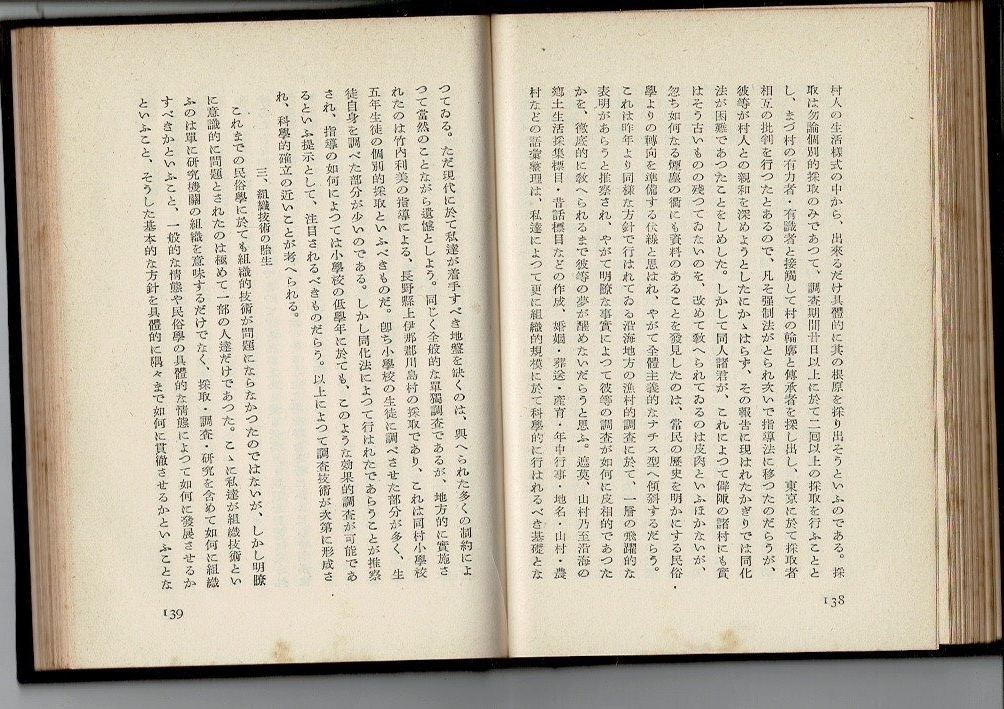 村人の生活樣式の中から、出來るだけ具體的に其の根原を採り出そうといふのである。採
取は勿論個別的採取のみであつて、調査期間廿日以上に於て二回以上の採取を行ふことと
し、まづ村の有力者・有識者と接觸して村の輪廓と傳承者を探し出し、東京に於て採取者
相互の批判を行つたとあるので、凡そ强制法がとられ次いで指導法に移つたのだらうが、
彼等が村人との親和を深めようとしたにかゝはらず、その報告に現はれたかぎりでは同化
法が困難であつたことをしめした。しかして同人諸君が、これによつて僻陬の諸村にも實
はそう古いものの殘つてゐないのを、改めて敎へられてゐるのは皮肉といふほかないが、
忽ち如何なる煙塵の衢にも資料のあることを發見したのは、常民の歷史を明かにする民俗
學よりの轉向を準備する伏線と思はれ、やがて全體主義的なナチス型へ傾斜するだらう。
これは昨年より同樣な方針で行はれてゐる沿海地方の漁村的調査に於て、一層の飛躍的な
表明があらうと推察され、やがて明瞭な事實によつて彼等の調査が如何に皮相的であつた
かを、徹底的に敎へられるまで彼等の夢が醒めないだらうと思ふ。遮莫、山村乃至沿海の
鄕土生活採集標目・昔話標目などの作成、婚姻・葬送・產育・年中行事・地名・山村・農
村などの語彙整理は、私達によつて更に組織的規模に於て科學的に行はれるべき基礎とな
138
つてゐる。ただ現代に於て私達が着手すべき地盤を缺くのは、與へられた多くの制約によ
つて當然のことながら遺憾としよう。同じく全般的な單獨調査であるが、地方的に實施さ
れたのは竹內利美の指導による、長野縣上伊那郡川島村の採取であり、これは同村小學校
五年生徒の個別的採取といふべきものだ。卽ち小學校の生徒に調べさせた部分が多く、生
徒自身を調べた部分が少いのである。しかし同化法によつて行はれたであらうことが推察
され、指導の如何によつては小學校の低學年に於ても、このような効果的調査が可能であ
るといふ提示として、注目されるべきものだらう。以上によつて調査技術が次第に形成さ
れ、科學的確立の近いことが考へられる。
三、組織技術の胎生
これまでの民俗學に於ても組織的技術が問題にならなかつたのではないが、しかし明瞭
に意識的に問題とされたのは極めて一部の人達だけであつた。こゝに私達が組織技術とい
ふのは單に硏究機關の組織を意味するだけでなく、採取・調査・硏究を含めて如何に組織
すべきかといふこと、一般的な情態や民俗學の具體的な情態によつて如何に發展させるか
といふこと、そうした基本的な方針を具體的に隅々まで如何に貫徹させるかといふことな
139